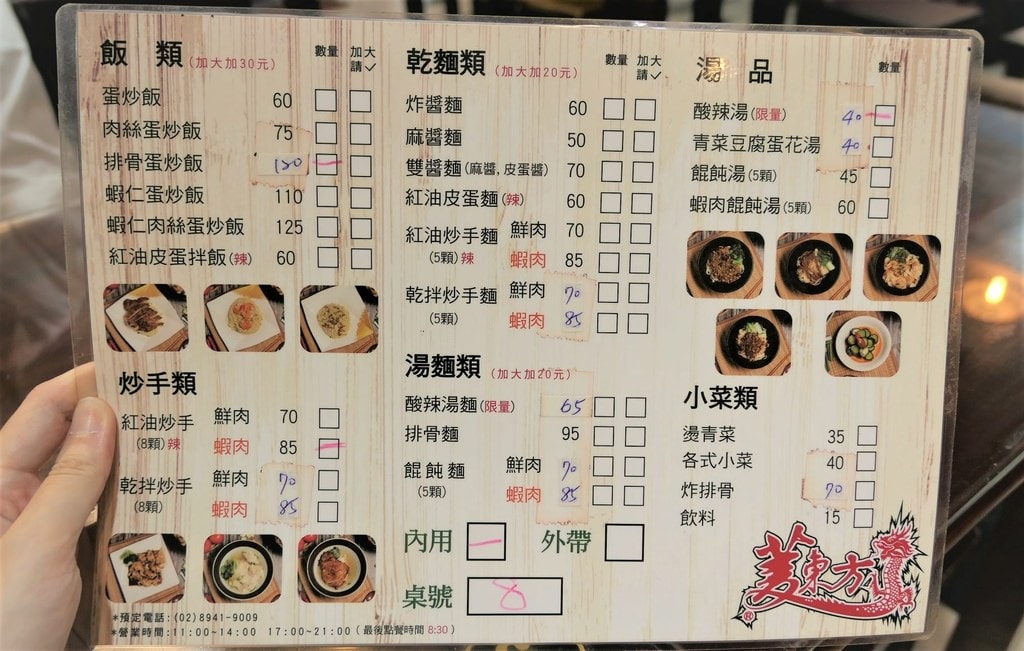 飯 類 (加大加30元) 數量 加大請✓
蛋炒飯 60
肉絲蛋炒飯 75
排骨蛋炒飯 130 一
蝦仁蛋炒飯 110
蝦仁肉絲蛋炒飯 125
紅油皮蛋拌飯(辣) 60
炒手類
紅油炒手 鮮肉 70
(8顆)辣 蝦肉 85 一
乾拌炒手 鮮肉 70
(8顆) 蝦肉 85
*預定電話:(02)8941-9009
*營業時間:11:00~14:00 17:00~21:00(最後點餐時間 8:30)
乾麵類 (加大加20元) 數量 加大請✓
炸醬麵 60
麻醬麵 50
雙醬麵(麻醬,皮蛋醬) 70
紅油皮蛋麵(辣) 60
紅油炒手麵 鮮肉 70
(5顆)辣 蝦肉 85
乾拌炒手麵 鮮肉 70
(5顆) 蝦肉 85
湯麵類 (加大加20元)
酸辣湯麵(限量) 65
排骨麵 95
餛飩麵 鮮肉 70
(5顆) 蝦肉 85
內用 一 外帶
桌號 8
湯 品 數量
酸辣湯(限量) 40 一
青菜豆腐蛋花湯 40
餛飩湯(5顆) 45
蝦肉餛飩湯(5顆) 60
小菜類
燙青菜 35
各式小菜 40
炸排骨 70
飲料 15
麵東方
®